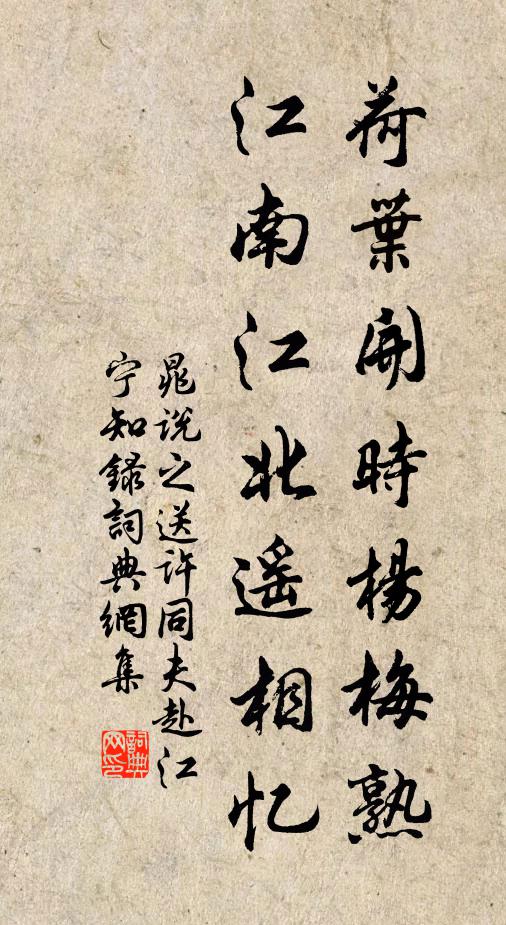 荷葉開時楊梅熟
江南江北遥相忆
晁説之送許同夫赴江
宁知録詞典網集
詞典网印